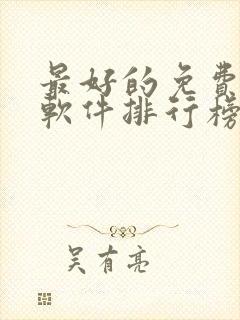 最好的免費
軟件排行榜
吴有亮